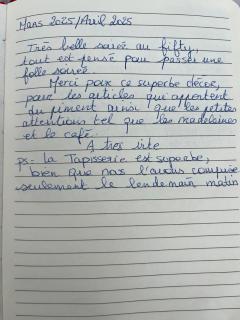 Mars 2025/Avril 2025
Très belle soirée au fifty,
tout est pensé pour passer une
folle soirée.
Merci pour ce superbe décor,
pour les articles qui apportent
du piment ainsi que les petites
attentions tel que les madeleines
et le café.
A très vite
ps - la Tapisserie est superbe,
bien que nous l'avons
seulement le lendemain matin